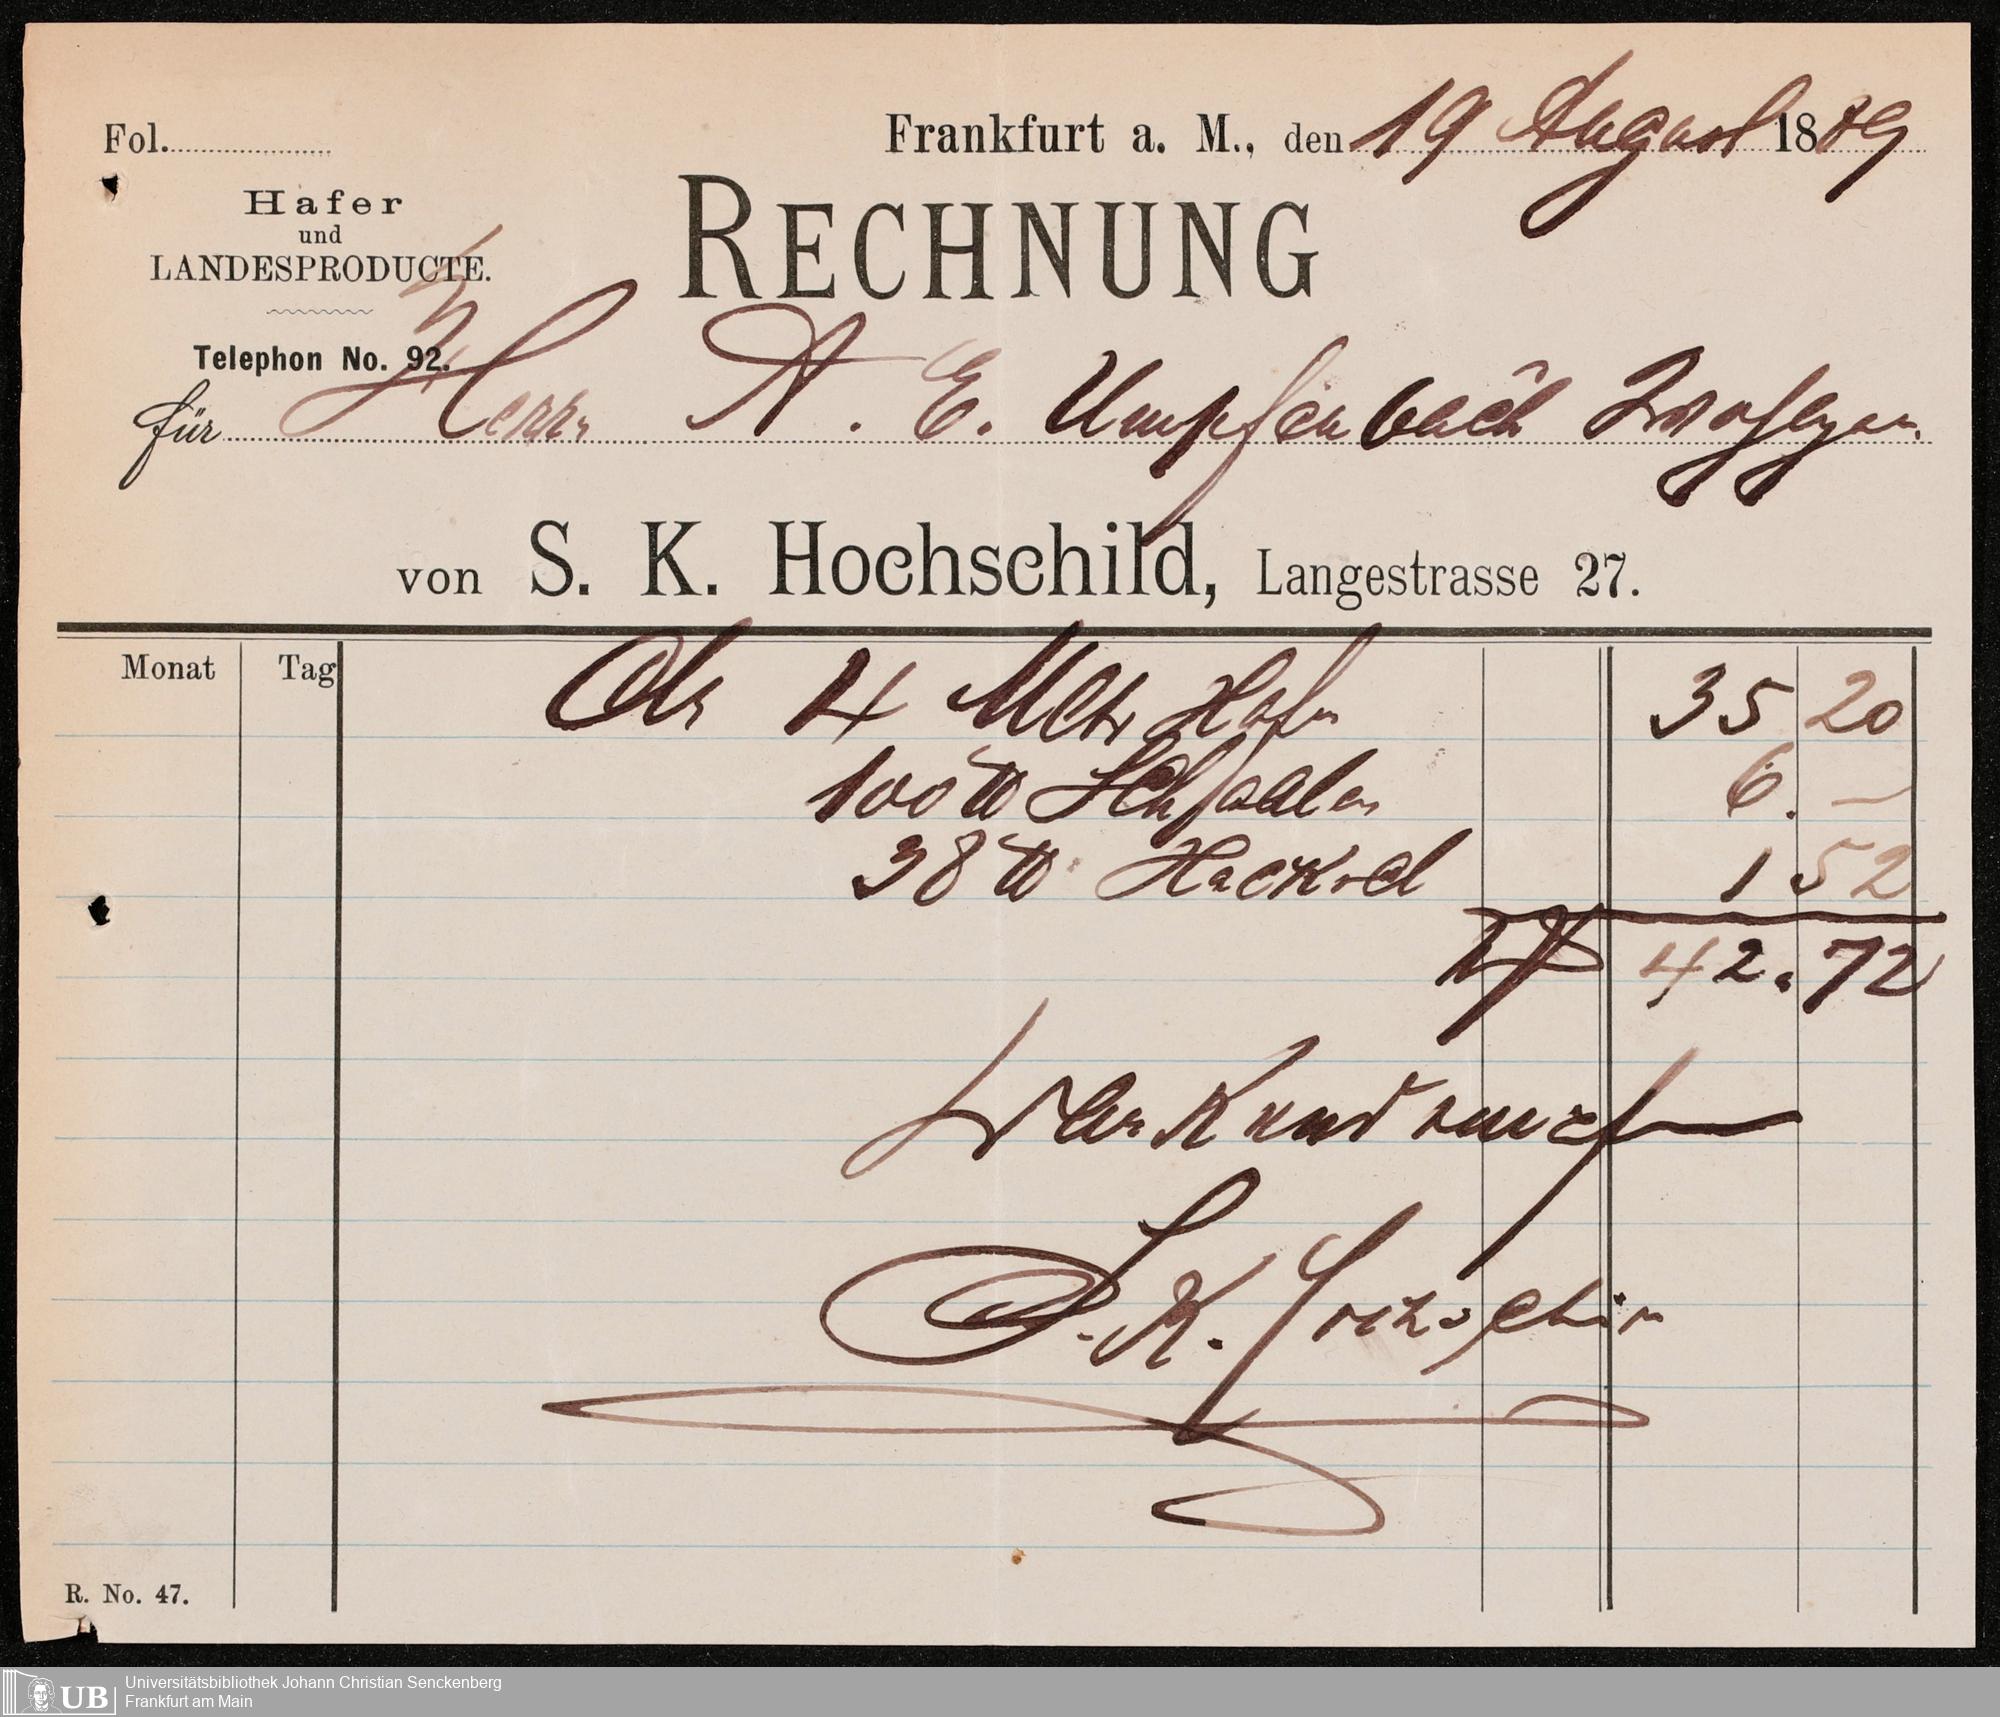 Fol.
Frankfurt a. M., den 19 August 1889
Hafer
und
LANDESPRODUCTE.
RECHNUNG
Telephon No. 92.
für Herrn A. E. Umpfenbach
von S. K. Hochschild, Langestrasse 27.
Monat Tag
4 Hafer 35 20
100 ℔ 6. –
38 ℔ 1 52
42.72
S. K.
R. No. 47.
UB
Universitätsbibliothek Johann Christian Senckenberg
Frankfurt am Main